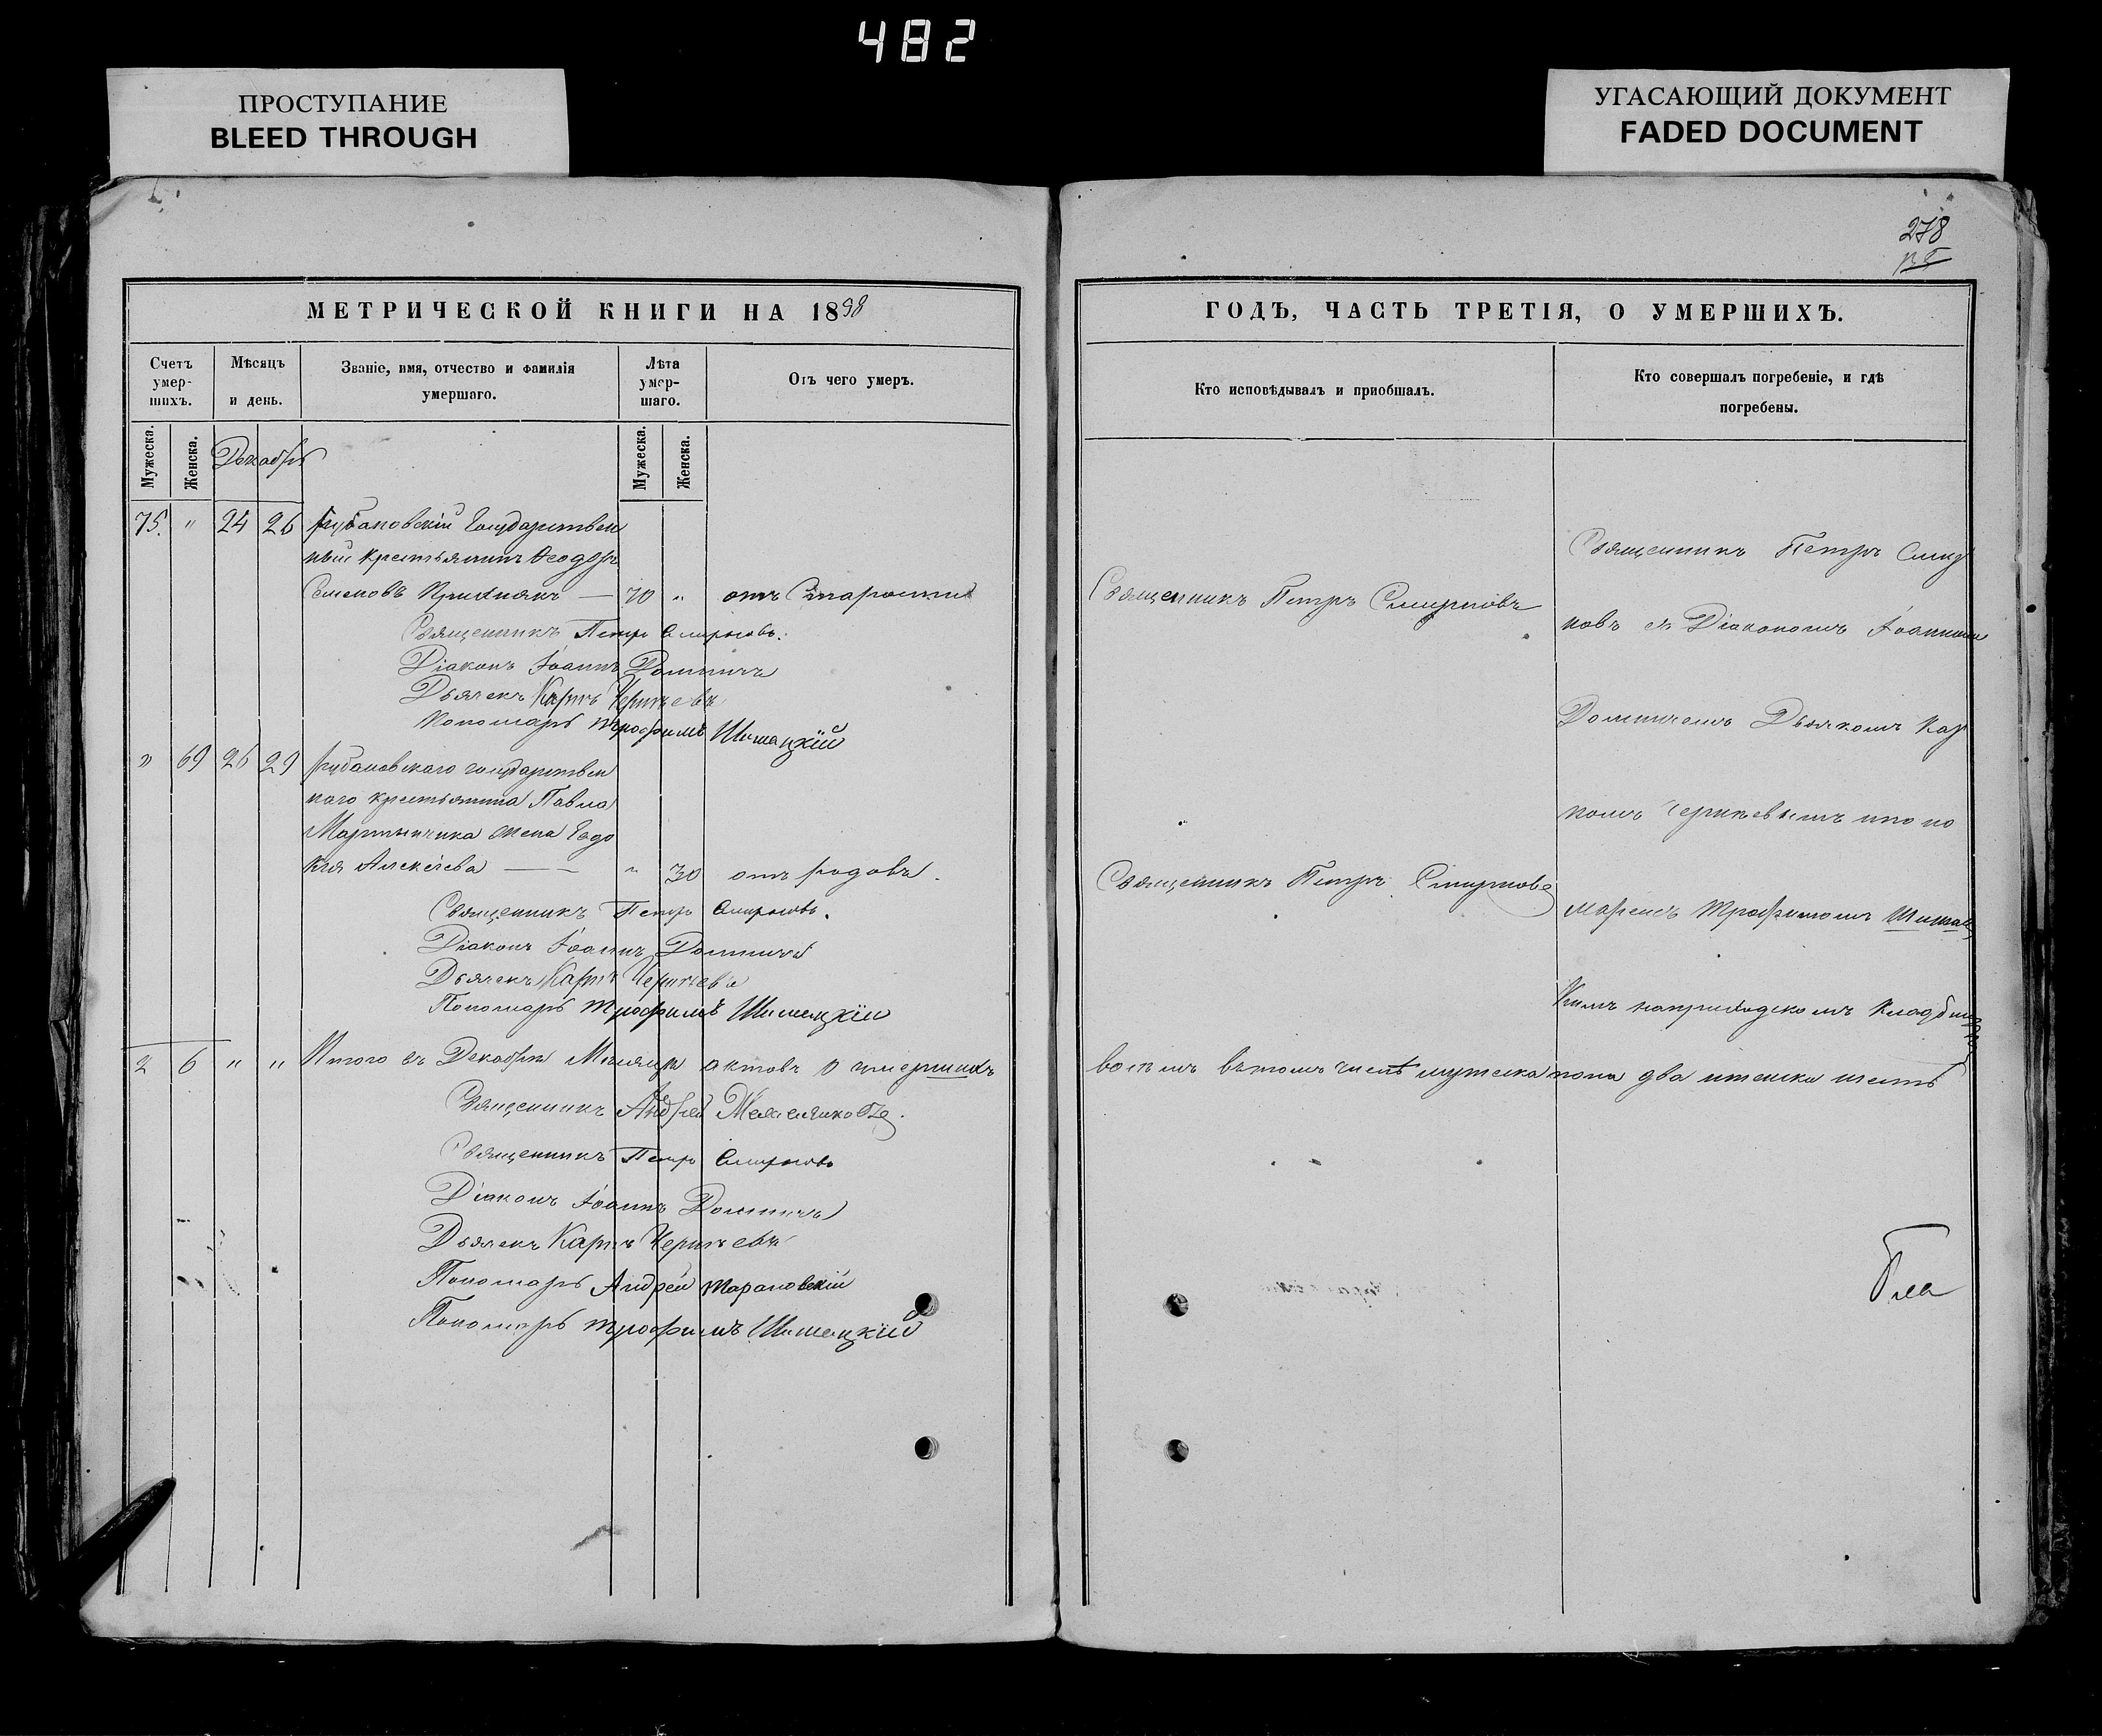 482
ПРОСТУПАНИЕ
BLEED THROUGH
УГАСАЮЩИЙ ДОКУМЕНТ
FADED DOCUMENT
278
МЕТРИЧЕСКОЙ КНИГИ НА 18
Счетъ умер-шихъ.
Мѣсяцъ и день.
Званіе, имя, отчество и фамилія умершаго.
Лѣта умер-шаго.
Отъ чего умеръ.
Мужеска.
Женска.
Декабрь
Мужеска.
Женска.
75. " 24 26 Рубановскій Государствен
ный крестьянинъ Ѳеодоръ
Семеновъ — 70 " отъ Старости
Священникъ Петръ Смирновъ.
Діаконъ Іоаннъ
Дьячекъ Карпъ
Пономарь Трофимъ Шишацкій
" 69 26 29 Рубановскаго государствен
наго крестьянина Павла
Мартынчика жена Евдо
кія Алексѣева — — " 30 отъ родовъ.
Священникъ Петръ Смирновъ.
Діаконъ Іоаннъ
Дьячекъ Карпъ
Пономарь Трофимъ Шишацкій
2 6 " " Итого въ Декабрѣ Мѣсяцѣ актовъ о умершихъ
Священникъ Андрей
Священникъ Петръ Смирновъ
Діаконъ Іоаннъ
Дьячекъ Карпъ
Пономарь Андрей Тарановскій
Пономарь Трофимъ Шишацкій
ГОДЪ, ЧАСТЬ ТРЕТІЯ, О УМЕРШИХЪ.
Кто исповѣдывалъ и пріобщалъ.
Кто совершалъ погребеніе, и гдѣ погребены.
Священникъ Петръ Смирновъ
Священникъ Петръ Смирновъ
Священникъ Петръ Смир
новъ съ Діакономъ Іоанномъ
Дьячкомъ Кар
помъ и поно
маремъ Трофимомъ Шишац
кимъ на приходскомъ кладбищѣ
восемь въ томъ числѣ мужеска пола два и женска шесть